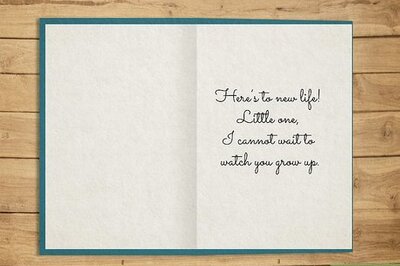 Here's to new life!
Little one,
I cannot wait to
watch you grow up.